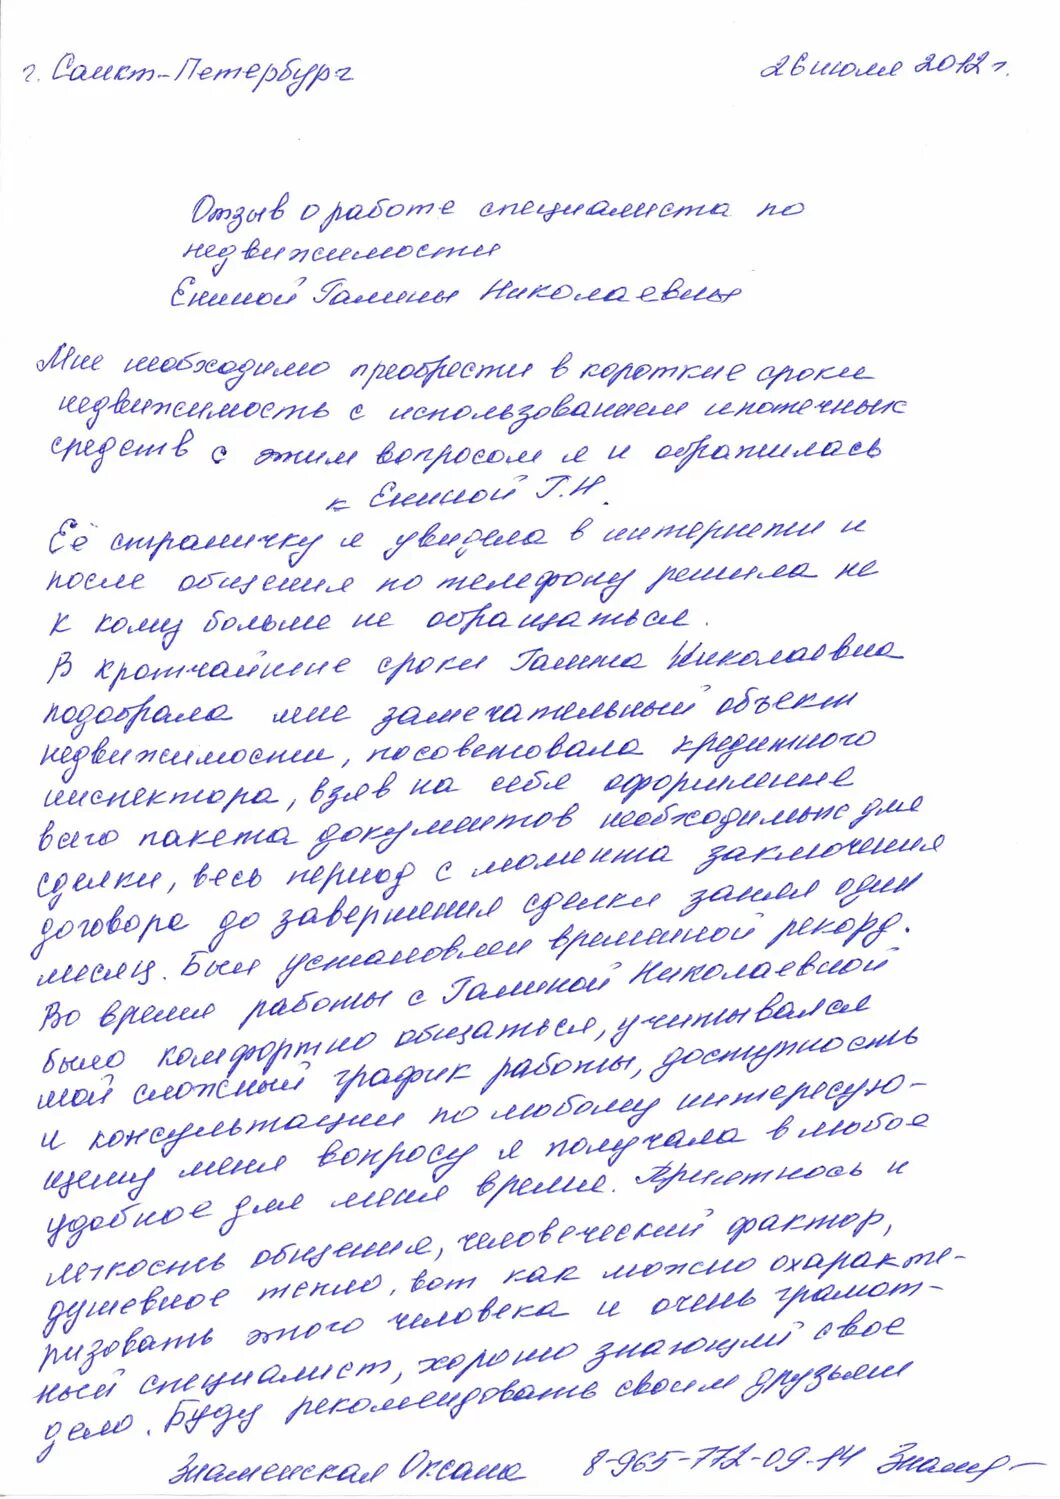 г. Санкт-Петербург
26 июля 2012 г.
Отзыв о работе специалиста по
недвижимости
Ениной Галины Николаевны
Мне необходимо преобрести в короткие сроки
недвижимость с использованием ипотечных
средств с этим вопросом я и обратилась
к Ениной Г.Н.
Её страничку я увидела в интернети и
после общения по телефону решила не
к кому больше не обращаться.
В кротчайшие сроки Галина Николаевна
подобрала мне замечательный объект
недвижимости, посоветовала кредитного
инспектора, взяв на себя оформление
всего пакета документов необходимых для
сделки, весь период с момента заключения
договора до завершения сделки занял один
месяц. Был установлен временной рекорд.
Во время работы с Галиной Николаевной
было комфортно общаться, учитывался
мой сложный график работы, доступность
и консультации по любому интересую-
щему меня вопросу я получала в любое
удобное для меня время. Приятность и
легкость общения, человеческий фактор,
душевное тепло, вот как можно охаракте-
ризовать этого человека и очень грамот-
ный специалист, хорошо знающий свое
дело. Буду рекомендовать своим друзьям
Знаменская Оксана 8-965-772-09-14 Знамен